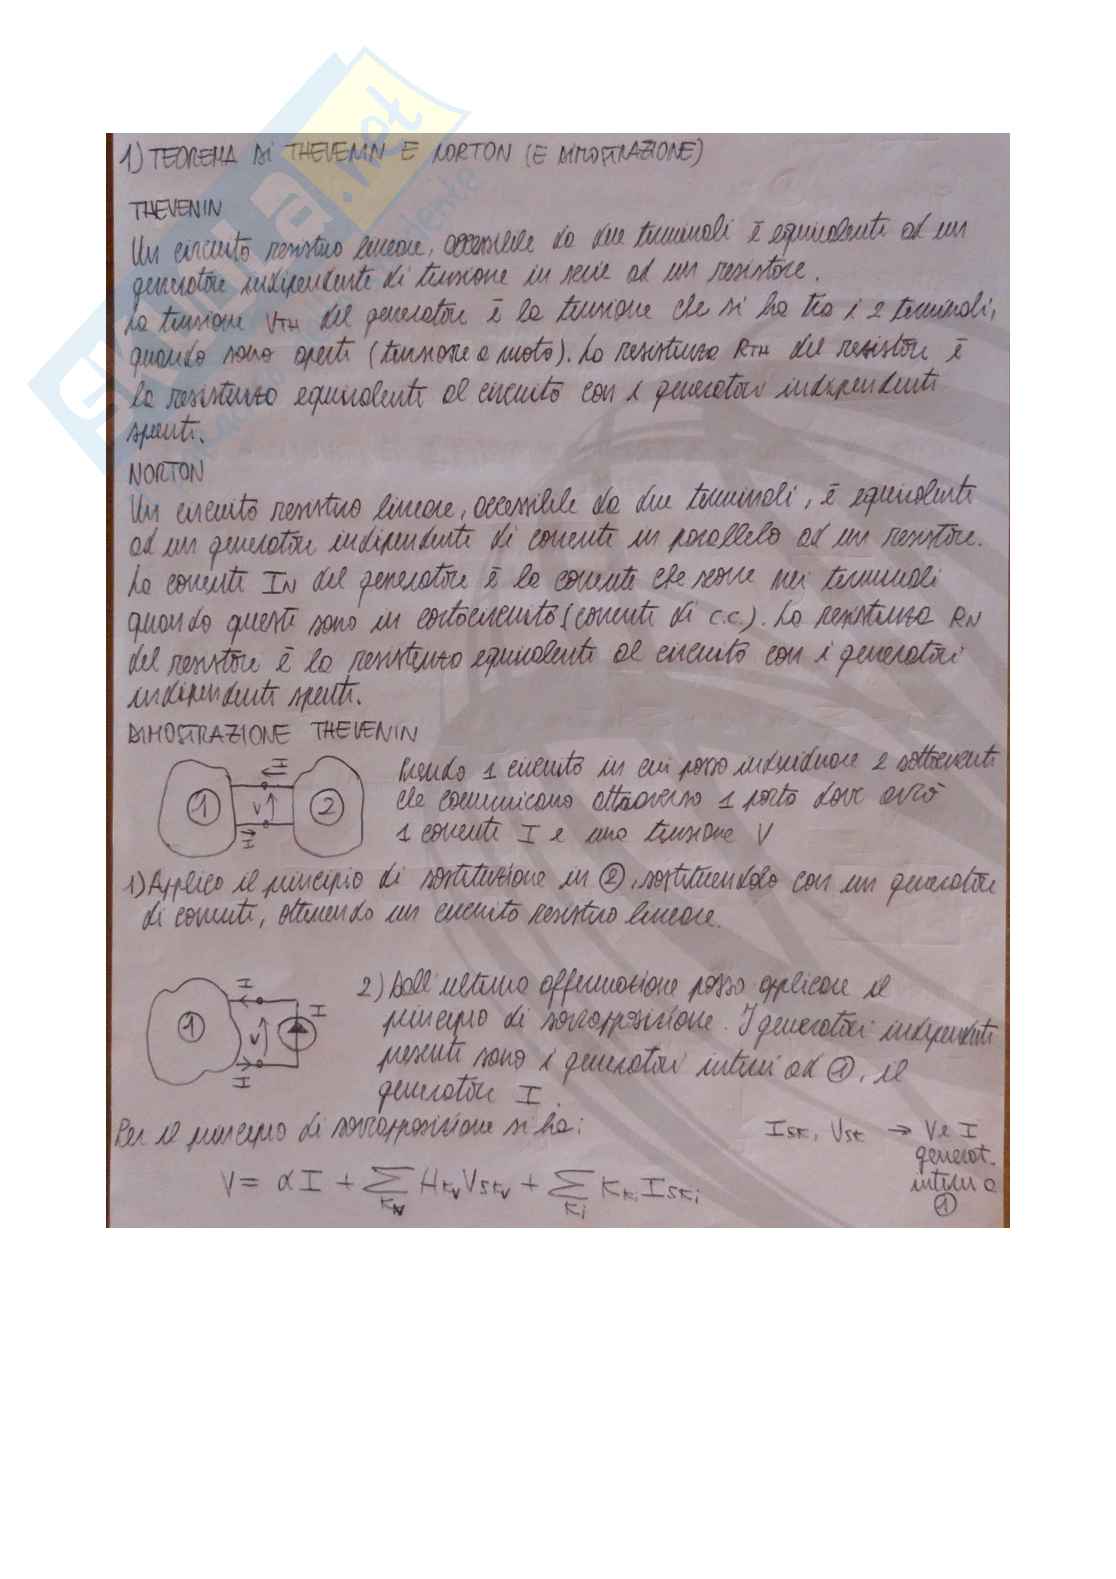 1) TEOREMA DI THEVENIN E NORTON (E DIMOSTRAZIONE)
THEVENIN
Un circuito resistivo lineare, accessibile da due terminali è equivalente ad un
generatore indipendente di tensione in serie ad un resistore.
La tensione VTH del generatore è la tensione che si ha tra i 2 terminali,
quando sono aperti (tensione a vuoto). La resistenza RTH del resistore è
la resistenza equivalente al circuito con i generatori indipendenti
spenti.
NORTON
Un circuito resistivo lineare, accessibile da due terminali, è equivalente
ad un generatore indipendente di corrente in parallelo ad un resistore.
La corrente IN del generatore è la corrente che scorre nei terminali
quando questi sono in cortocircuito (corrente di c.c.). La resistenza RN
del resistore è la resistenza equivalente al circuito con i generatori
indipendenti spenti.
DIMOSTRAZIONE THEVENIN
I
1 V 2
I
Prendo 1 circuito in cui posso individuare 2 sottocircuiti
che comunicano attraverso 1 porta dove avrò
1 corrente I e una tensione V
1) Applico il principio di sostituzione in 2, sostituendolo con un generatore
di corrente, ottenendo un circuito resistivo lineare.
I
1 V I
I
2) Dall'ultima affermazione posso applicare il
principio di sovrapposizione. I generatori indipendenti
presenti sono i generatori interni ad 1, il
generatore I.
Per il principio di sovrapposizione si ha:
ISK, VSK → V e I
generat.
interni a
1
V = αI + ∑Kv HKv VSKv + ∑Ki KKi ISKi
skuola.net